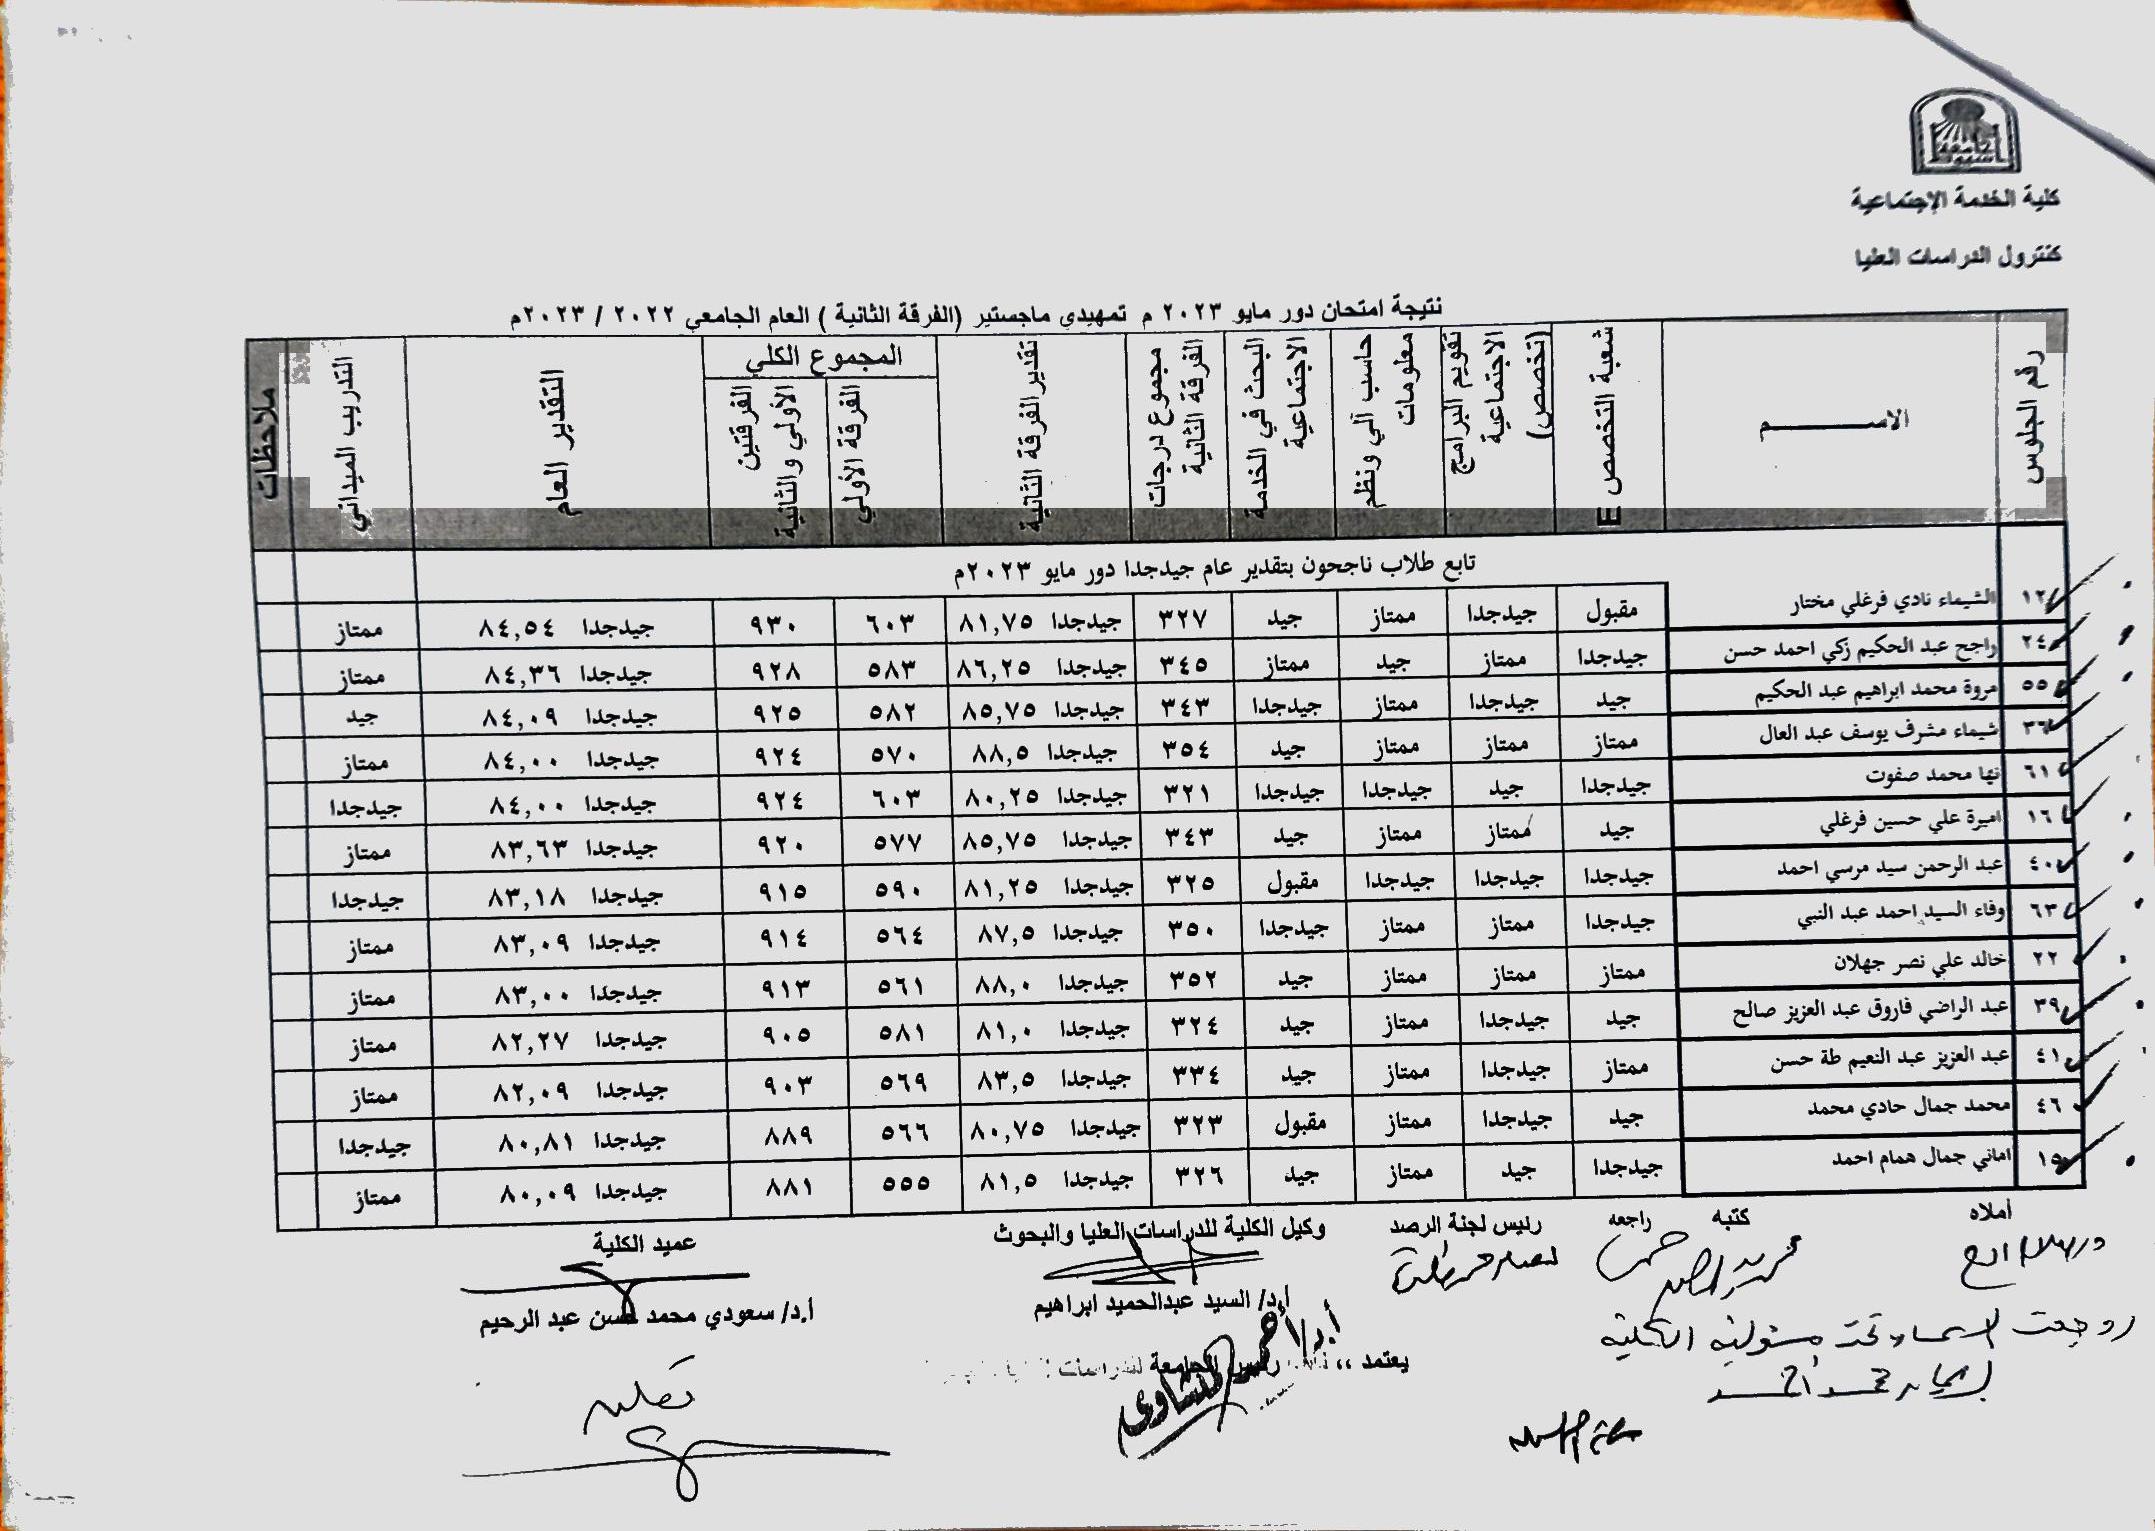 كلية الخدمة الإجتماعية
كنترول الدراسات العليا
نتيجة امتحان دور مايو ٢٠٢٣ م تمهيدي ماجستير (الفرقة الثانية ) العام الجامعي ٢٠٢٢ / ٢٠٢٣م
رقم الجلوس الاســـــــم شعبة التخصص E تقويم البرامج الاجتماعية (تخصص) حاسب آلي ونظم معلومات البحث في الخدمة الاجتماعية مجموع درجات الفرقة الثانية تقدير الفرقة الثانية المجموع الكلي الفرقة الأولي الفرقتين الأولي والثانية التقدير العام التدريب الميداني ملاحظات
تابع طلاب ناجحون بتقدير عام جيدجدا دور مايو ٢٠٢٣م
١٢ الشيماء نادي فرغلي مختار مقبول جيدجدا ممتاز جيد ٣٢٧ جيدجدا ٨١,٧٥ ٦٠٣ ٩٣٠ جيدجدا ٨٤,٥٤ ممتاز
٢٤ راجح عبد الحكيم زكي احمد حسن جيدجدا ممتاز جيد ممتاز ٣٤٥ جيدجدا ٨٦,٢٥ ٥٨٣ ٩٢٨ جيدجدا ٨٤,٣٦ ممتاز
٥٥ مروة محمد ابراهيم عبد الحكيم جيد جيدجدا ممتاز جيدجدا ٣٤٣ جيدجدا ٨٥,٧٥ ٥٨٢ ٩٢٥ جيدجدا ٨٤,٠٩ جيد
٣٦ شيماء مشرف يوسف عبد العال ممتاز ممتاز ممتاز جيد ٣٥٤ جيدجدا ٨٨,٥ ٥٧٠ ٩٢٤ جيدجدا ٨٤,٠٠ ممتاز
٦١ نها محمد صفوت جيدجدا جيد جيدجدا جيدجدا ٣٢١ جيدجدا ٨٠,٢٥ ٦٠٣ ٩٢٤ جيدجدا ٨٤,٠٠ جيدجدا
١٦ اميرة علي حسين فرغلي جيد ممتاز ممتاز جيد ٣٤٣ جيدجدا ٨٥,٧٥ ٥٧٧ ٩٢٠ جيدجدا ٨٣,٦٣ ممتاز
٤٠ عبد الرحمن سيد مرسي احمد جيدجدا جيدجدا جيدجدا مقبول ٣٢٥ جيدجدا ٨١,٢٥ ٥٩٠ ٩١٥ جيدجدا ٨٣,١٨ جيدجدا
٦٣ وفاء السيد احمد عبد النبي جيدجدا ممتاز ممتاز جيدجدا ٣٥٠ جيدجدا ٨٧,٥ ٥٦٤ ٩١٤ جيدجدا ٨٣,٠٩ ممتاز
٢٢ خالد علي نصر جهلان ممتاز ممتاز ممتاز جيد ٣٥٢ جيدجدا ٨٨,٠ ٥٦١ ٩١٣ جيدجدا ٨٣,٠٠ ممتاز
٣٩ عبد الراضي فاروق عبد العزيز صالح جيد جيدجدا ممتاز جيد ٣٢٤ جيدجدا ٨١,٠ ٥٨١ ٩٠٥ جيدجدا ٨٢,٢٧ ممتاز
٤١ عبد العزيز عبد النعيم طة حسن ممتاز جيدجدا ممتاز جيد ٣٣٤ جيدجدا ٨٣,٥ ٥٦٩ ٩٠٣ جيدجدا ٨٢,٠٩ ممتاز
٤٦ محمد جمال حادي محمد جيد جيدجدا ممتاز مقبول ٣٢٣ جيدجدا ٨٠,٧٥ ٥٦٦ ٨٨٩ جيدجدا ٨٠,٨١ جيدجدا
١٥ اماني جمال همام احمد جيدجدا جيد ممتاز جيد ٣٢٦ جيدجدا ٨١,٥ ٥٥٥ ٨٨١ جيدجدا ٨٠,٠٩ ممتاز
أملاه كتبه راجعه رئيس لجنة الرصد وكيل الكلية للدراسات العليا والبحوث عميد الكلية
أ.د/ السيد عبدالحميد ابراهيم أ.د/ سعودي محمد حسن عبد الرحيم
روجعت الاسماء تحت مسئولية الكلية
يعتمد ،، نائب رئيس الجامعة للدراسات